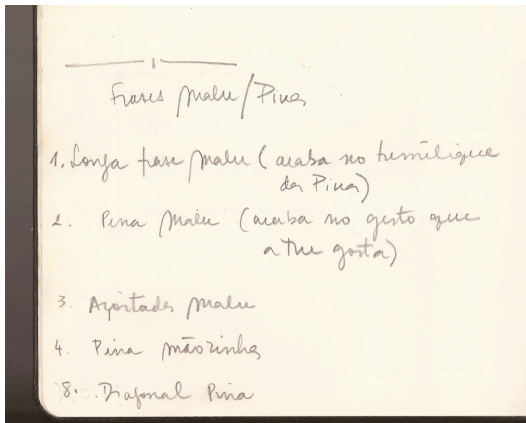 Frases Malu/Pina
1. Longa frase Malu (acaba no
da Pina)
2. Pina Malu (acaba no gesto que
a gosta)
3. Malu
4. Pina mãozinhas
8. Diagonal Pina